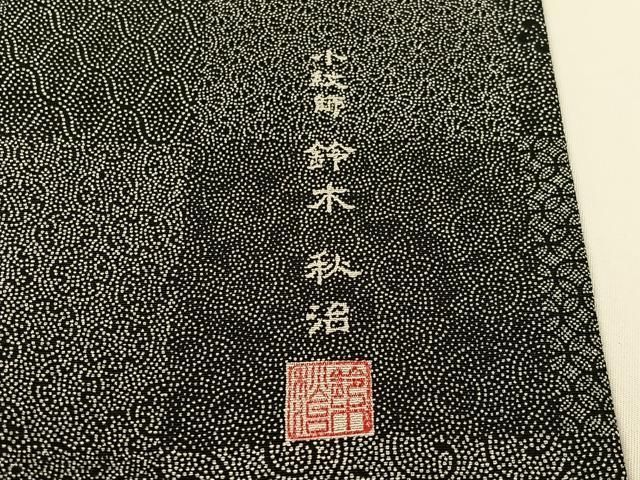 小紋師 鈴木 秋治
鈴木
秋治